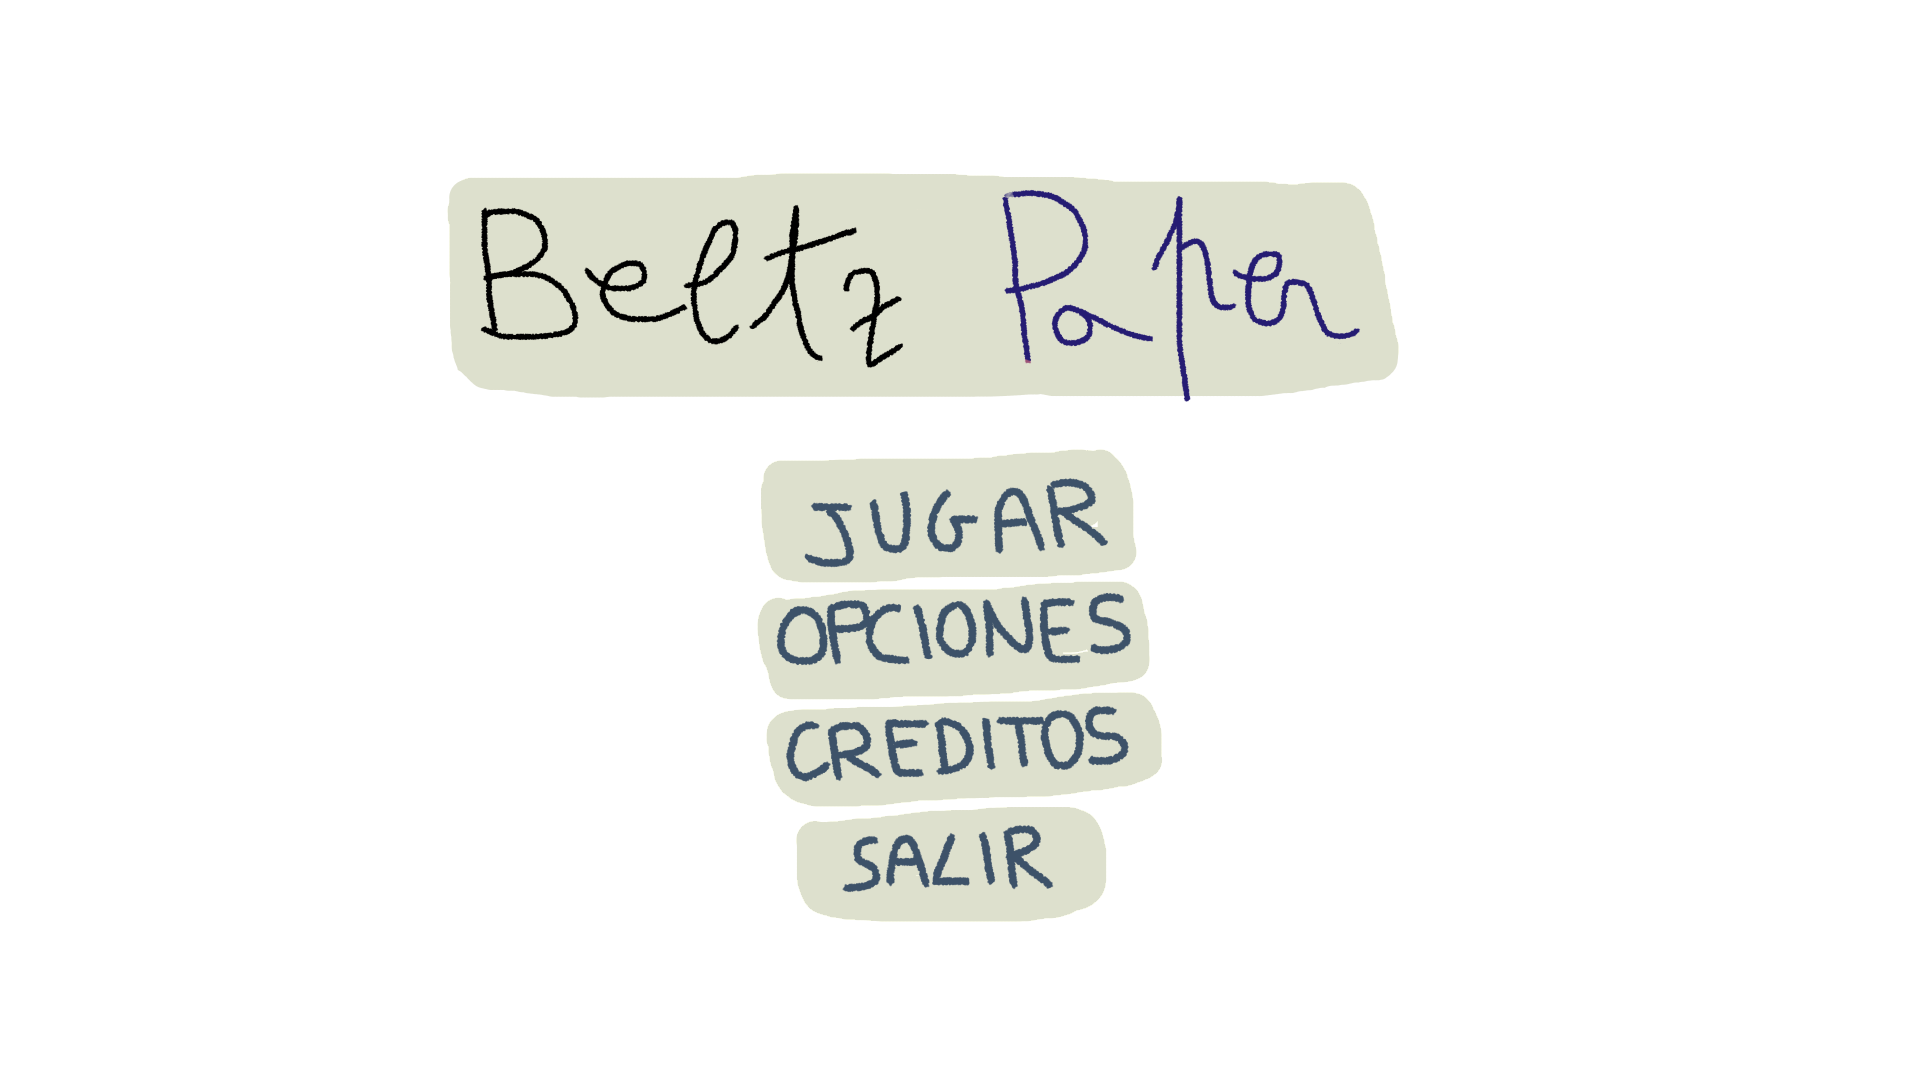 Beltz Paper
JUGAR
OPCIONES
CREDITOS
SALIR